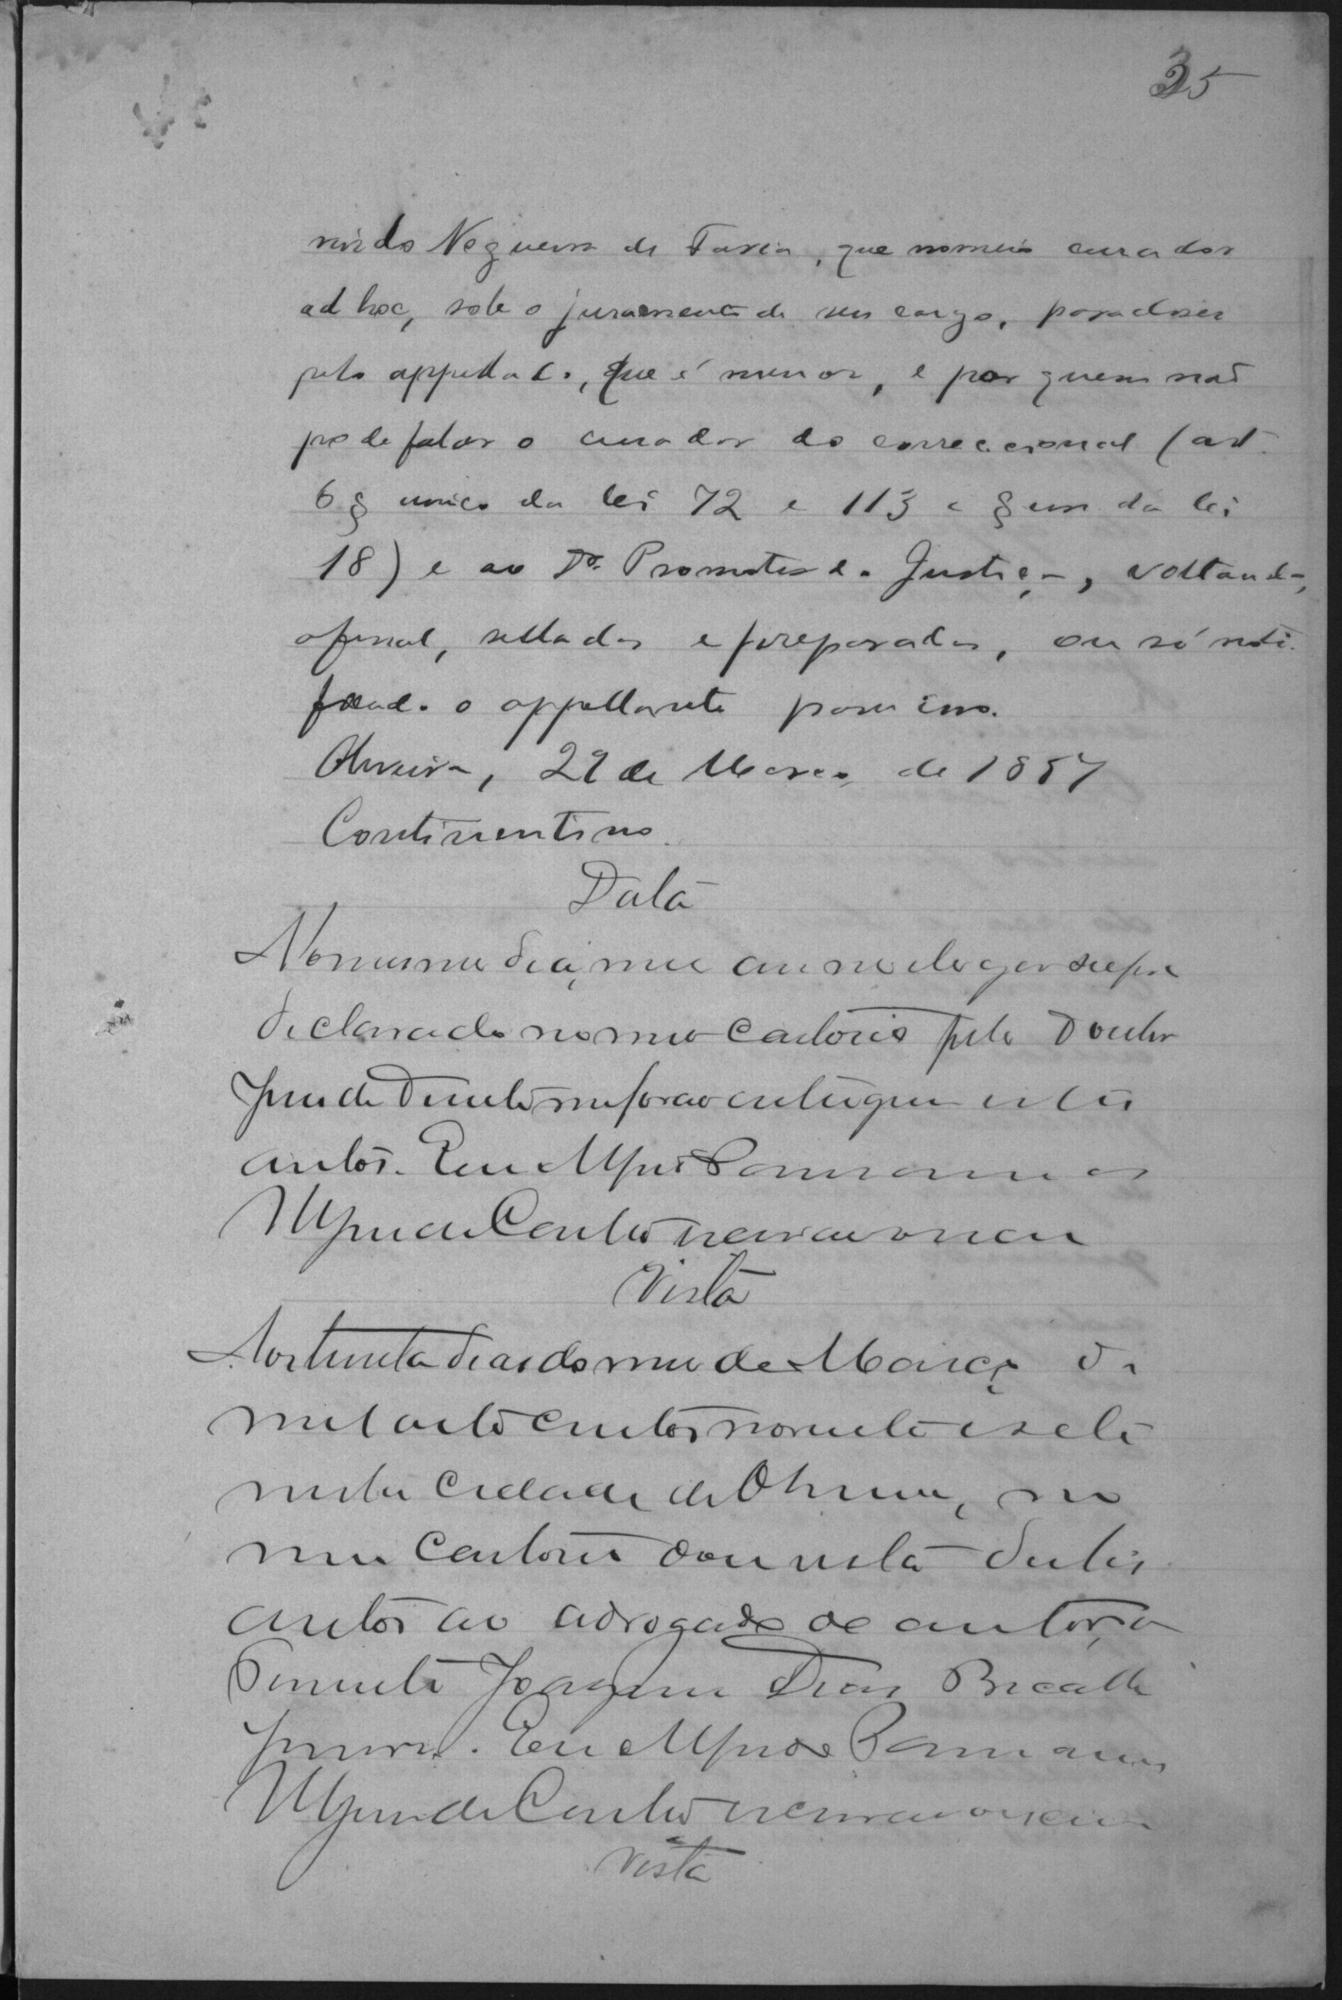 35
Nogueira de Faria, que nomeio curador
ad hoc, sob o juramento de seu cargo, para dizer
pelo appellado, que é menor, e por quem não
pode falar o curador do correccional (art.
6 § unico da lei 72 e 113 e § un da lei
18) e ao Dr. Promotor da Justiça, voltando,
afinal, sellados e preparados, ou só noti-
ficado o appellante para isso.
Oliveira, 29 de Março de 1897
Continentino.
Data
No mesmo dia, mez anno e logar supra
declarado no meo cartorio pelo Doutor
Juiz de Direito me forão entregues estes
autos. Eu
de Castro escrivão
Vista
Aos trinta dias do mez de Março de
mil oito centos noventa e sete
nesta cidade de Oliveira, no
meu cartorio dou vista destes
autos ao advogado de autor, o
Tenente Joaquim Dias Bicalho
Junior. Eu
de Castro escrivão
Vista